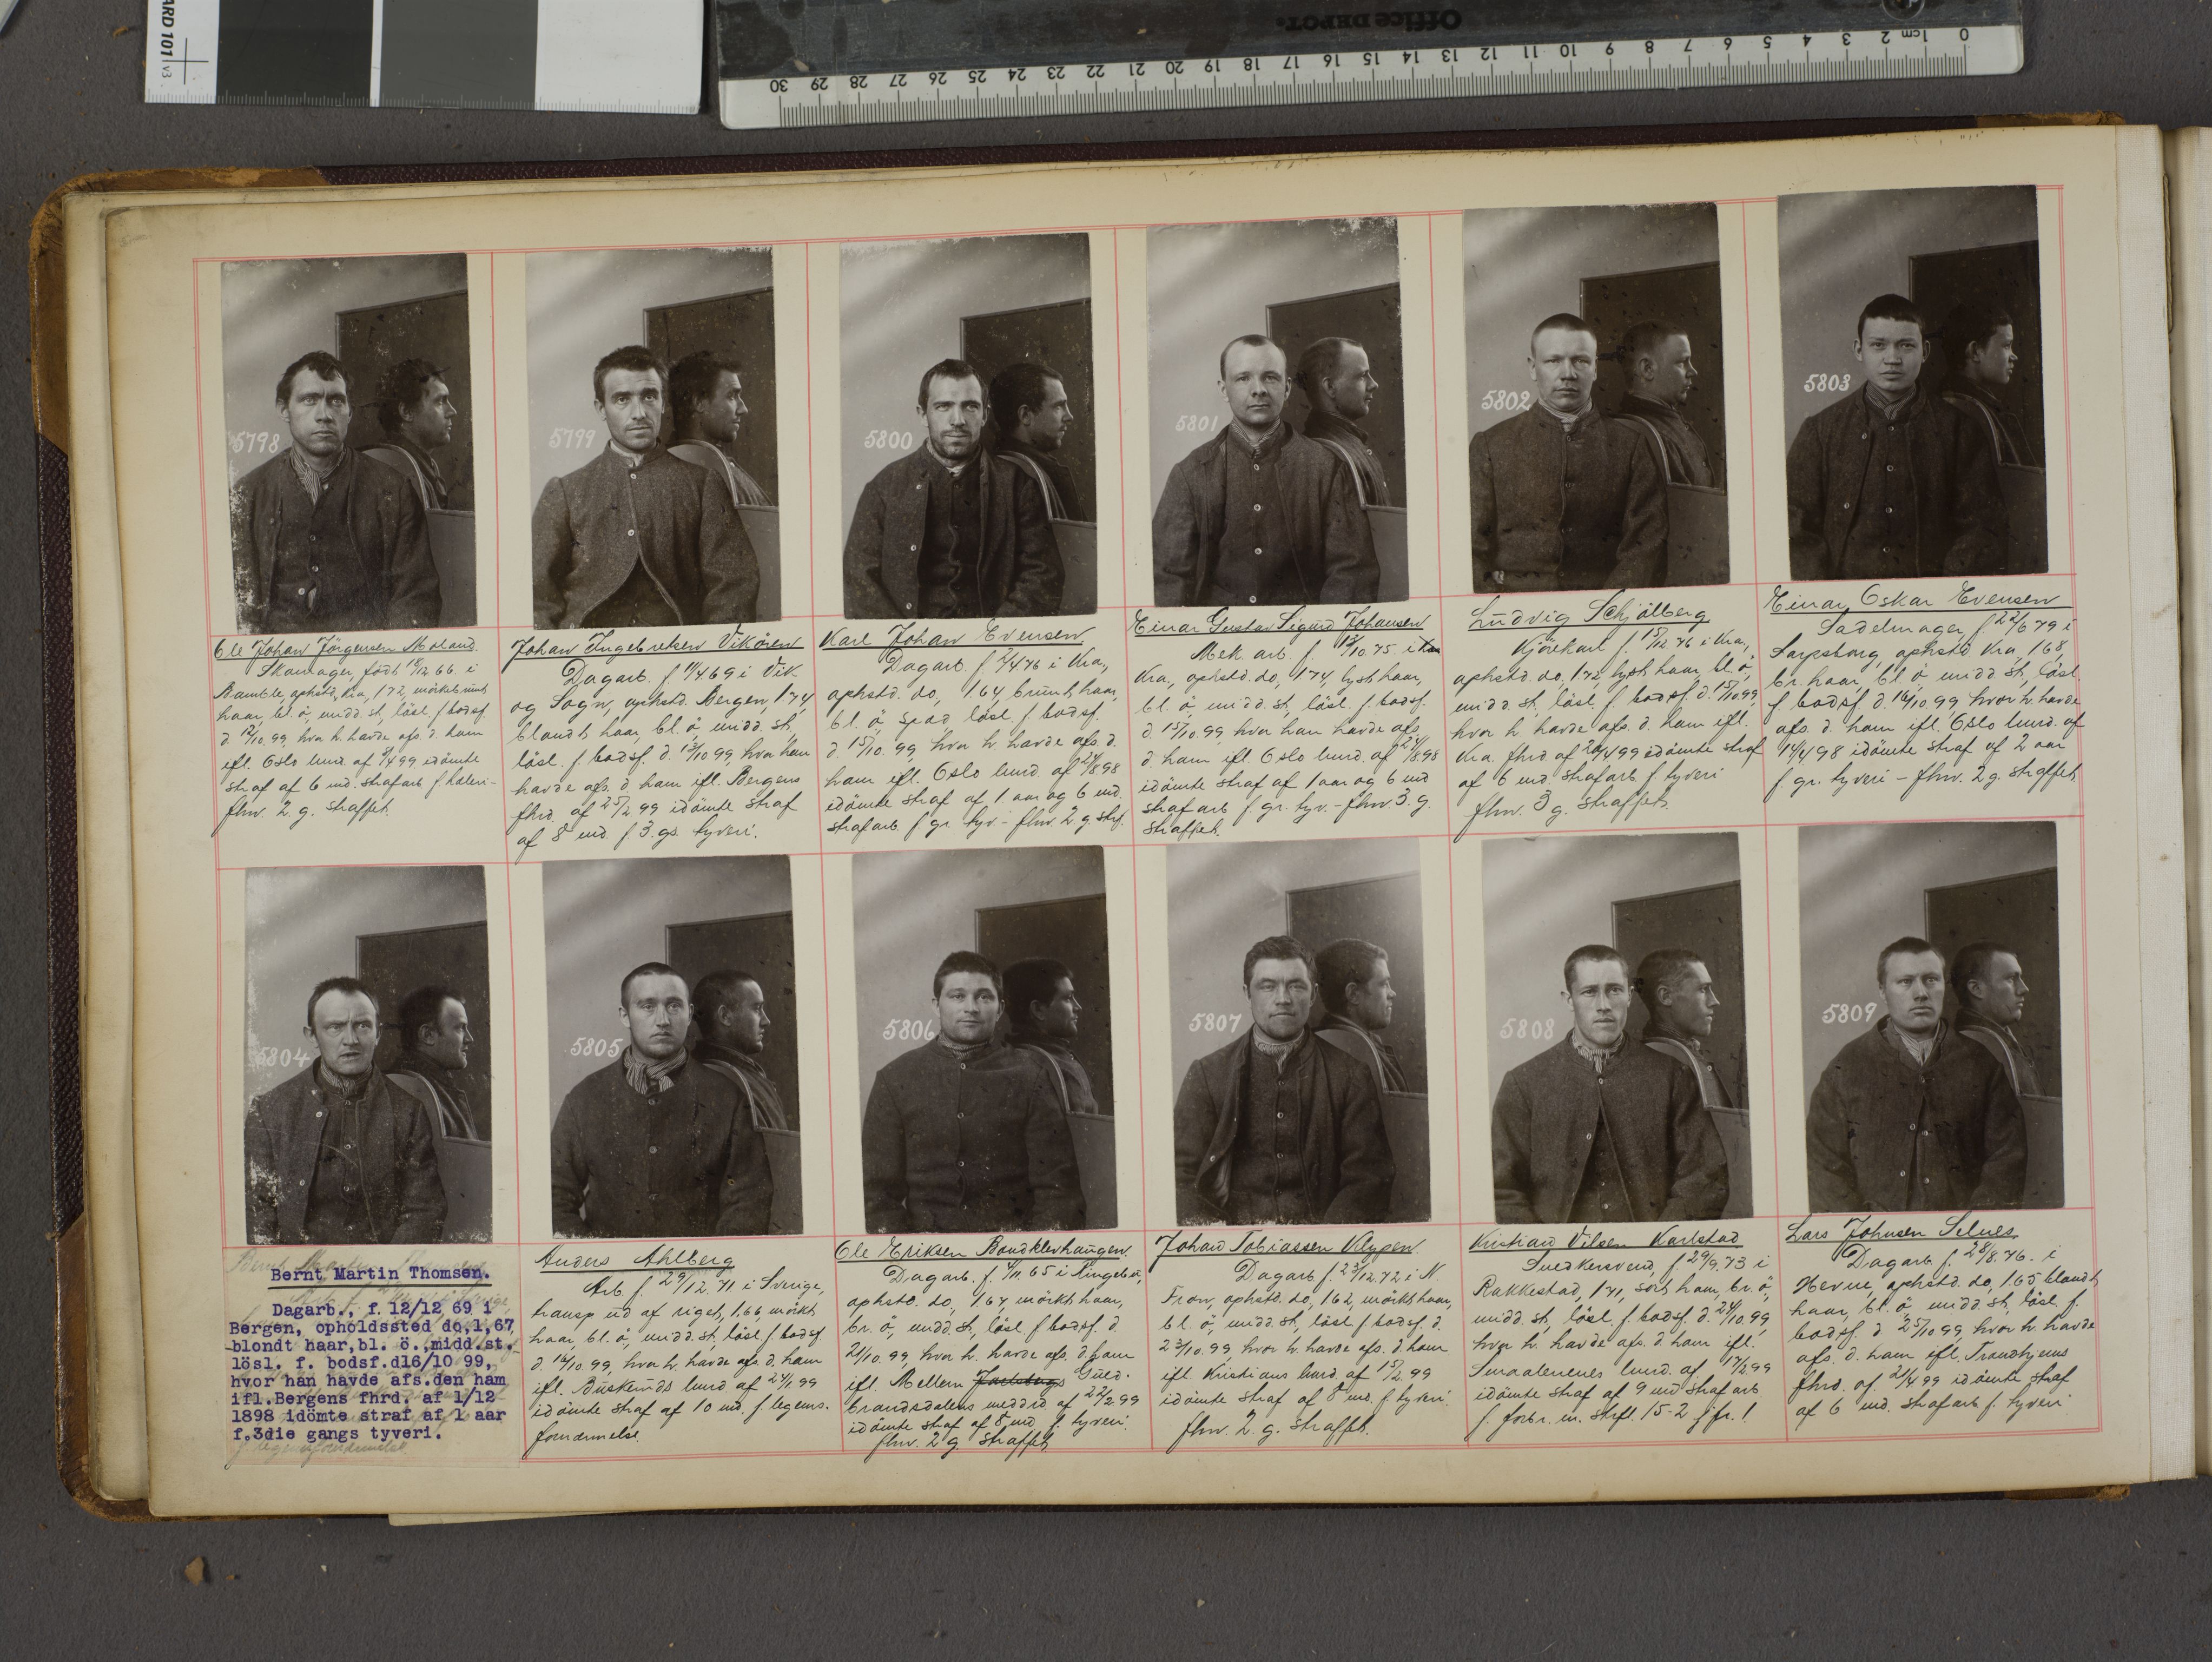 ARD 101 v3
Office DEPOT.
0 1cm 2 3 4 5 6 7 8 9 10 11 12 13 14 15 16 17 18 19 20 21 22 23 24 25 26 27 28 29 30
5798
Ole Johan Jörgensen Moland.
Skomager, født 18/12 66 i
Bamble, ophstd. Kra, 172, mörkebrunt
haar, bl. ö, midd. st, lösl. f bodsf.
d. 12/10 99, hvor h. havde afs. d. ham
ifl. Oslo lmrd. af 99 idömte
straf af 6 md. strafarb f hæleri-
fhv. 2 g. straffet.
5799
Johan Ingebretsen Vikören
Dagarb. f. 11/4 69 i Vik
og Sogn, ophstd. Bergen, 174,
blandt haar, bl. ö, midd. st,
lösl. f bodsf. d 13/10 99, hvor han
havde afs. d. ham ifl. Bergens
fhrd. af 25/2 99 idömte straf
af 8 md. f 3. gs. tyveri.
5800
Karl Johan Evensen
Dagarb. f 2/4 76 i Kra,
ophstd. do, 164, brunt haar,
bl. ö, spæd lösl. f bodsf.
d 15/10. 99, hvor h. havde afs. d.
ham ifl. Oslo lmrd. af 27/8 98
idömte straf af 1 aar og 6 md.
strafarb f gr. tyv. - fhv. 2 g. strf.
5801
Einar Gustav Sigurd Johansen
Mek. arb. f. 13/10 75 i
Kra., ophstd. do, 174, lyst haar,
bl. ö, midd. st, lösl. f. bodsf.
d. 15/10. 99 hvor han havde afs.
d. ham ifl. Oslo lmrd. af 27/8 98
idömte straf af 1 aar og 6 md
strafarb f gr. tyv. - fhv 3. g.
straffet.
5802
Ludvig Schjölberg
Kjörekarl f. 15/12 76 i Kra,
ophstd. do, 172, lyst haar, bl. ö,
midd. st, lösl. f. bodsf. d. 15/10. 99,
hvor h. havde afs. d. ham ifl.
Kra. fhrd. af 20/4 99 idömte straf
af 6 md. strafarb f tyveri
fhv. 3 g. straffet.
5803
Einar Oskar Evensen
Sadelmager f. 22/6 79 i
Sarpsborg, ophstd. Kra, 168,
br. haar, bl. ö, midd. st, lösl.
f bodsf. d. 16/10 99, hvor h. havde
afs. d. ham ifl. Oslo lmrd. af
14/4 98 idömte straf af 2 aar
f. gr. tyveri - fhv. 2 g. straffet.
5804
Bernt Martin Thomsen.
Dagarb., f. 12/12 69 i
Bergen, opholdssted do,1,67,
blondt haar,bl. ö.,midd.st.
lösl. f. bodsf.d16/10 99,
hvor han havde afs.den ham
ifl.Bergens fhrd. af 1/12
1898 idömte straf af 1 aar
f.3die gangs tyveri.
5805
Anders Ahlberg
Arb. f. 29/12. 71 i Sverige,
transp ud af riget, 1,66, mörkt
haar bl. ö, midd. st, lösl f bodsf.
d. 16/10 99, hvor h. havde afs. d. ham
ifl. Buskeruds lmrd af 24/1. 99
idömte straf af 10 md. f legems.
fornærmelse.
5806
Ole Eriksen Boudklevhaugen.
Dagarb. f. 65 i Ringebu,
ophstd. do, 167, mörkt haar,
br. ö, midd. st, lösl f bodsf. d.
21/10. 99, hvor h. havde afs. d. ham
ifl. Mellem Jarlsbergs Gud.
brandsdalens meddrd af 22/2. 99
idömte straf af 8 md. f. tyveri.
fhv. 2 g straffet
5807
Johan Tobiassen Klypen
Dagarb f. 23/12. 72 i N.
Fron, ophstd. do, 162, mörkt haar,
bl. ö, midd. st, lösl f bodsf. d.
23/10. 99 hvor h. havde afs. d. ham
ifl. Kristians lmrd. af 15/2. 99
idömte straf af 8 md. f. tyveri.
fhv. 2. g. straffet.
5808
Kristian Nilsen Karlstad
Snedkersvend, f. 29/9. 73 i
Rakkestad, 171, sort haar, br. ö,
midd. st, lösl. f. bodsf. d. 24/10. 99,
hvor h. havde afs. d. ham ifl.
Smaalenenes lmrd. af 17/2 99
idömte straf af 9 md strafarb
f. forbr. m. strfl. 15-2 jfr. 1
5809
Lars Johnsen Selnes
Dagarb f. 28/8. 76. i
Hevne, ophstd. do, 165 blandt
haar, bl. ö midd. st, lösl. f.
bodsf. d 25/10 99, hvor h. havde
afs. d. ham ifl. Trondhjems
fhrd. af 21/4. 99 idömte straf
af 6 md. strafarb f. tyveri